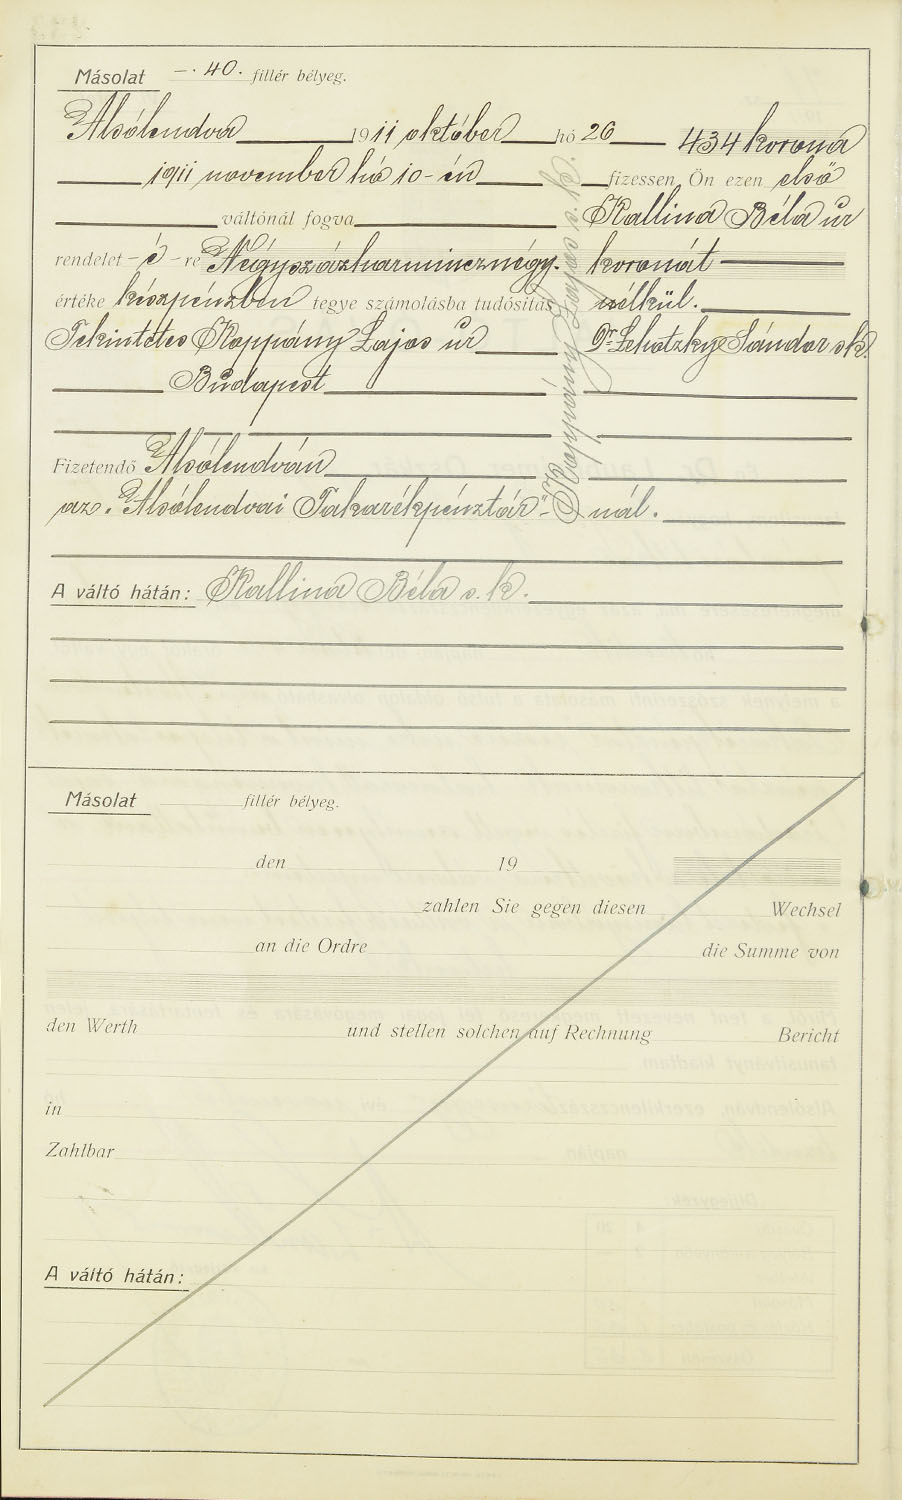 Másolat —. 40. fillér bélyeg.
Alsólendva 1911 október hó 26 434 korona
1911 november hó 10-én fizessen Ön ezen első
váltónál fogva Kallina Béla úr
rendelet - é - re Négyszázharmincznégy. koronát
értéke készpénzben tegye számolásba tudósítás nélkül.
Tekintetes Koppány Lajos úr Dr. Lehotzky Sándor sk.
Budapest
Koppány Lajos s. k.
Fizetendő Alsólendván
az „Alsólendvai Takarékpénztár"- nál.
A váltó hátán: Kallina Béla s. k.
Másolat fillér bélyeg.
den 19
zahlen Sie gegen diesen Wechsel
an die Ordre die Summe von
den Werth und stellen solchen auf Rechnung Bericht
in
Zahlbar
A váltó hátán: